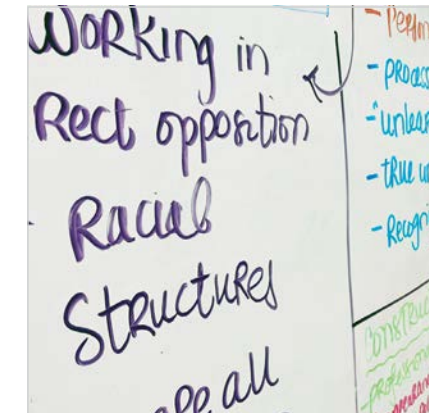 Working in
Rect opposition
Racial
Structures
all
- Perfor
- process
- "unleas
- true u
- Recogni
Construc
- profession